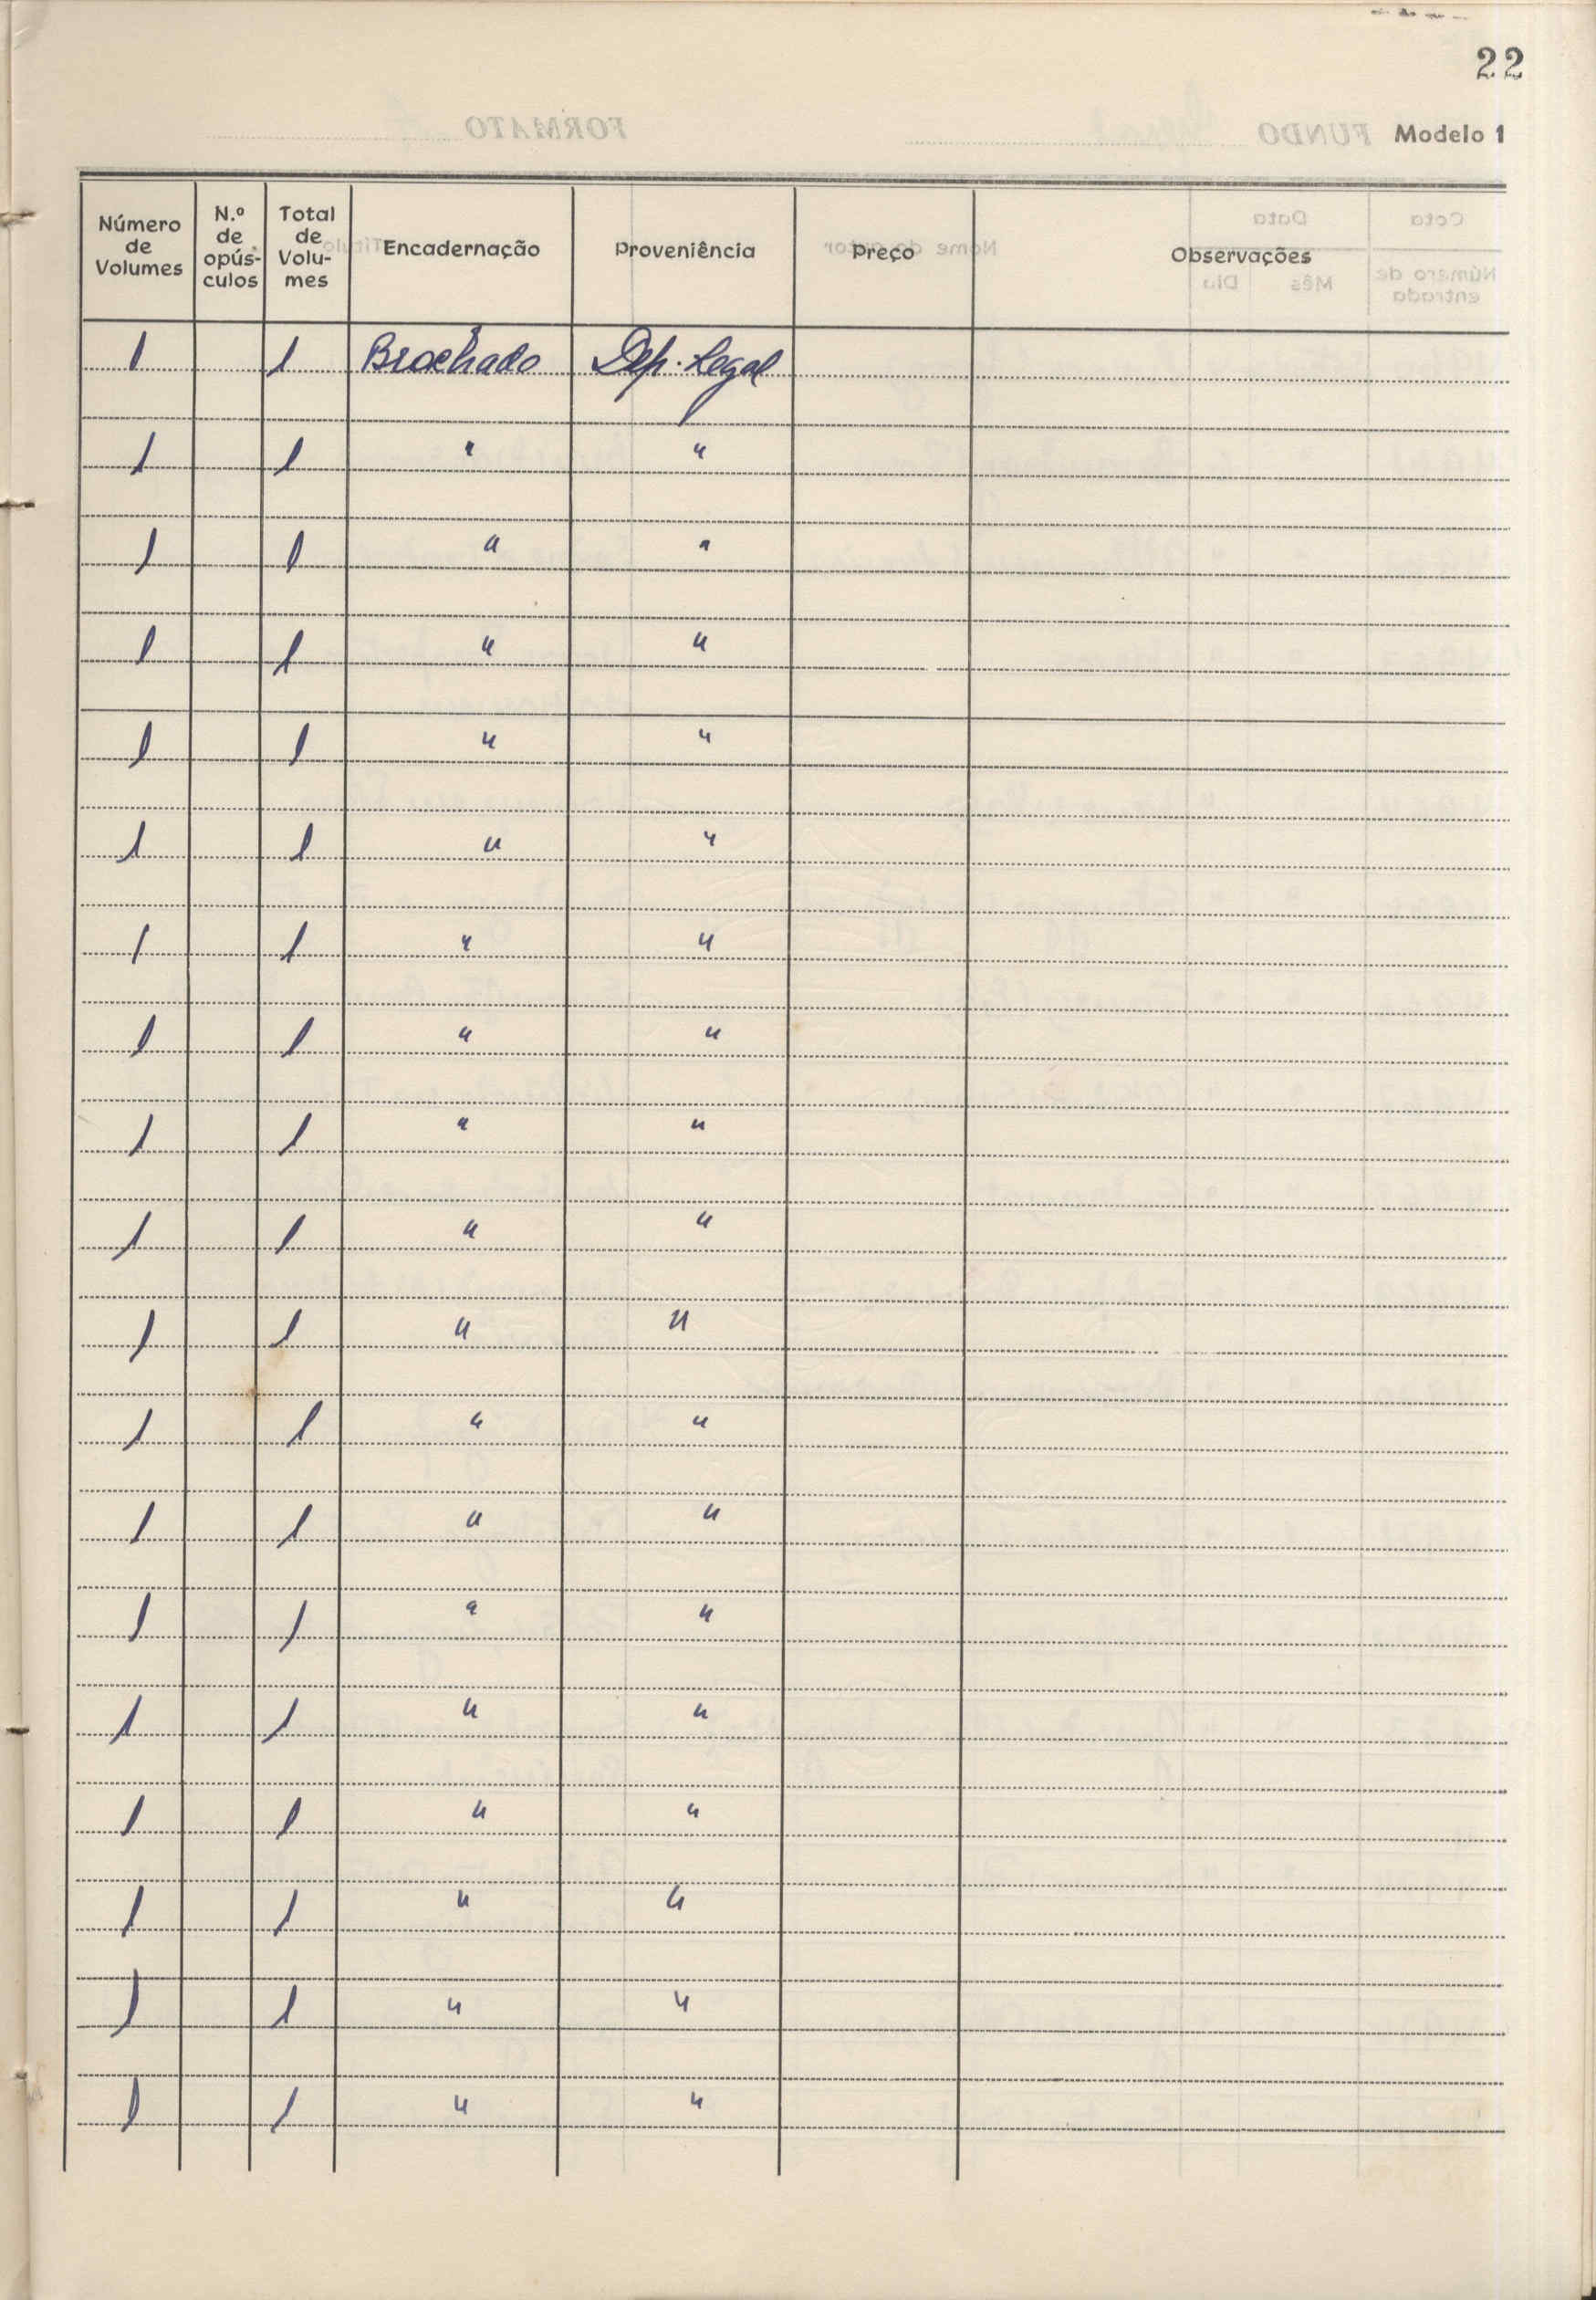 22
Modelo 1
Número de Volumes | N.º de opús-culos | Total de Volu-mes | Encadernação | Proveniência | Preço | Observações
1 | | 1 | Brochado | Dep. Legal
1 | | 1 | " | "
1 | | 1 | " | "
1 | | 1 | " | "
1 | | 1 | " | "
1 | | 1 | " | "
1 | | 1 | " | "
1 | | 1 | " | "
1 | | 1 | " | "
1 | | 1 | " | "
1 | | 1 | " | "
1 | | 1 | " | "
1 | | 1 | " | "
1 | | 1 | " | "
1 | | 1 | " | "
1 | | 1 | " | "
1 | | 1 | " | "
1 | | 1 | " | "
1 | | 1 | " | "